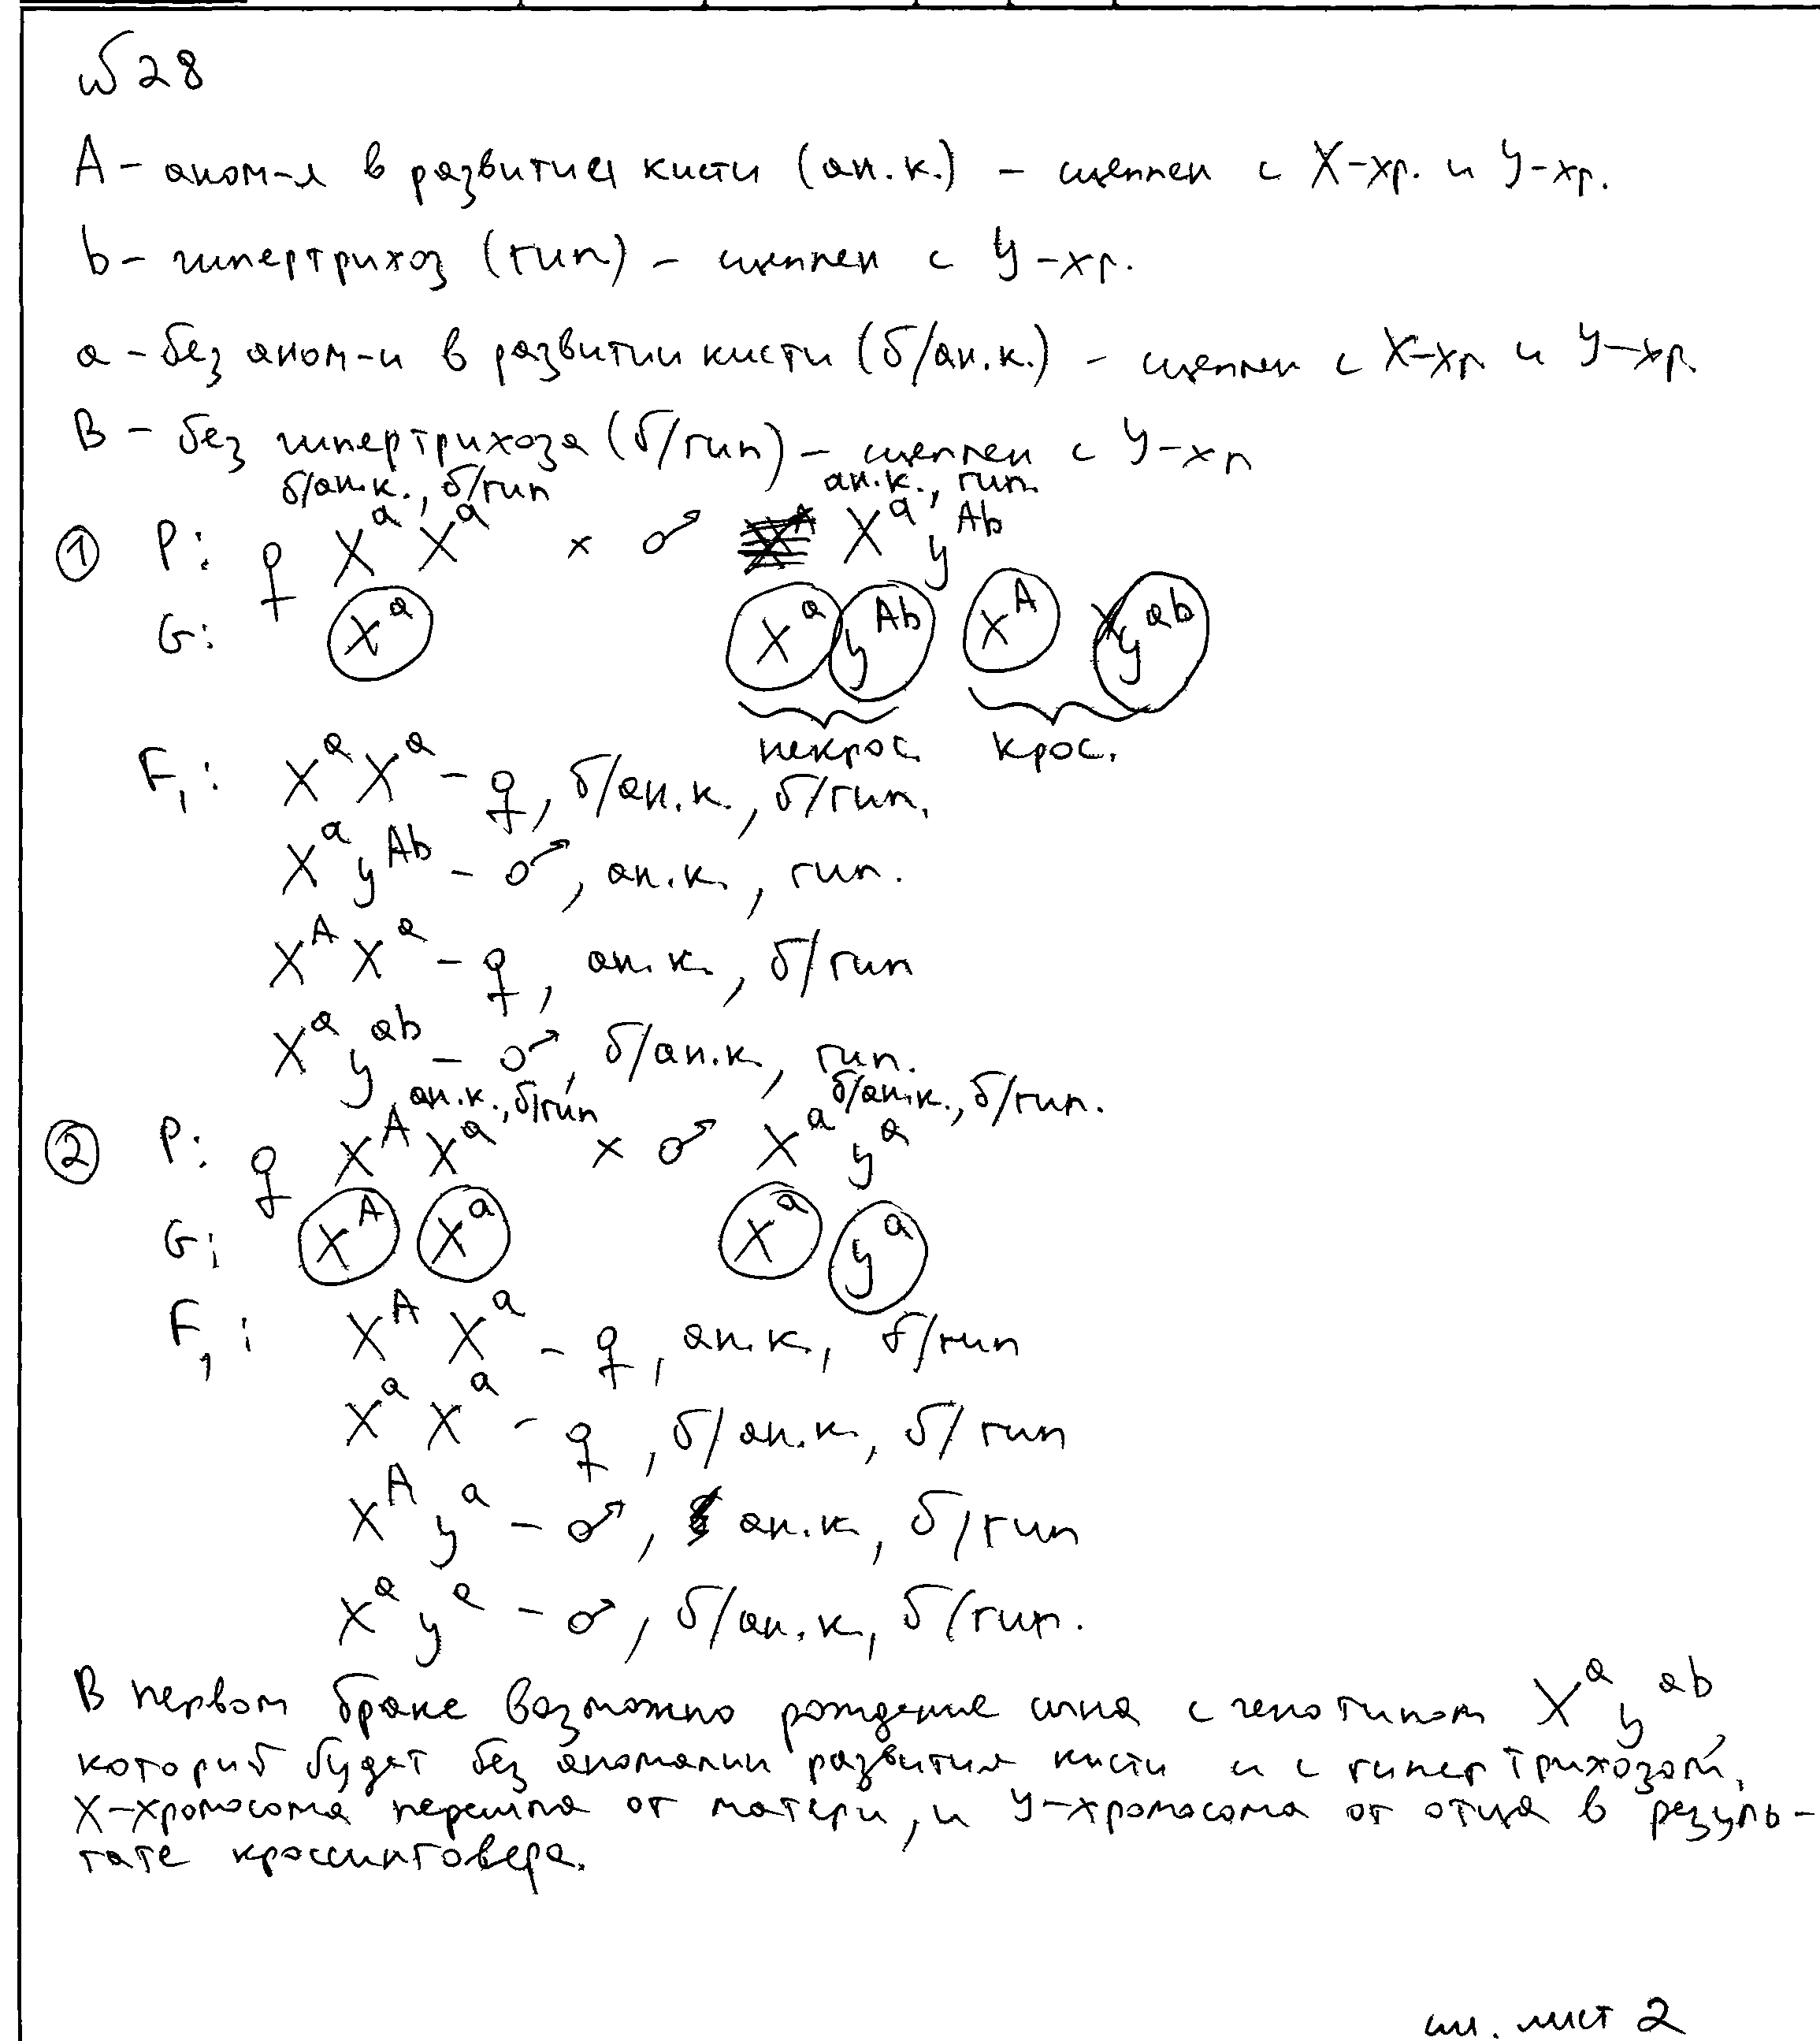 № 28
A – аном-я в развитии кисти (ан.к.) – сцеплен с X-хр. и У-хр.
b – гипертрихоз (гип) – сцеплен с У-хр.
a – без аном-и в развитии кисти (б/ан.к.) – сцеплен с X-хр и У-хр.
B – без гипертрихоза (б/гип) – сцеплен с У-хр
б/ан.к., б/гип ан.к., гип.
① P: ♀ XᵃXᵃ × ♂ XᵃYᴬᵇ
G: Xᵃ Xᵃ Yᴬᵇ Xᴬ Yᵃᵇ
некрос. крос.
F₁: XᵃXᵃ – ♀, б/ан.к., б/гип.
XᵃYᴬᵇ – ♂, ан.к., гип.
XᴬXᵃ – ♀, ан.к., б/гип
XᵃYᵃᵇ – ♂, б/ан.к., гип.
ан.к., б/гип б/ан.к., б/гип.
② P: ♀ XᴬXᵃ × ♂ XᵃYᵃ
G: Xᴬ Xᵃ Xᵃ Yᵃ
F₁: XᴬXᵃ – ♀, ан.к., б/гип
XᵃXᵃ – ♀, б/ан.к., б/гип
XᴬYᵃ – ♂, ан.к., б/гип
XᵃYᵃ – ♂, б/ан.к., б/гип.
В первом браке возможно рождение сына с генотипом XᵃYᵃᵇ
который будет без аномалии развития кисти и с гипертрихозом,
X-хромосома перешла от матери, и У-хромосома от отца в резуль-
тате кроссинговера.
см. лист 2